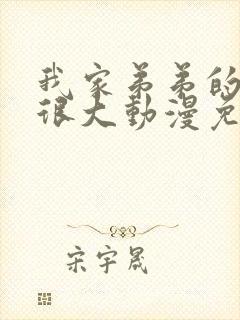 我家弟弟的
很大動漫免
宋宇晟